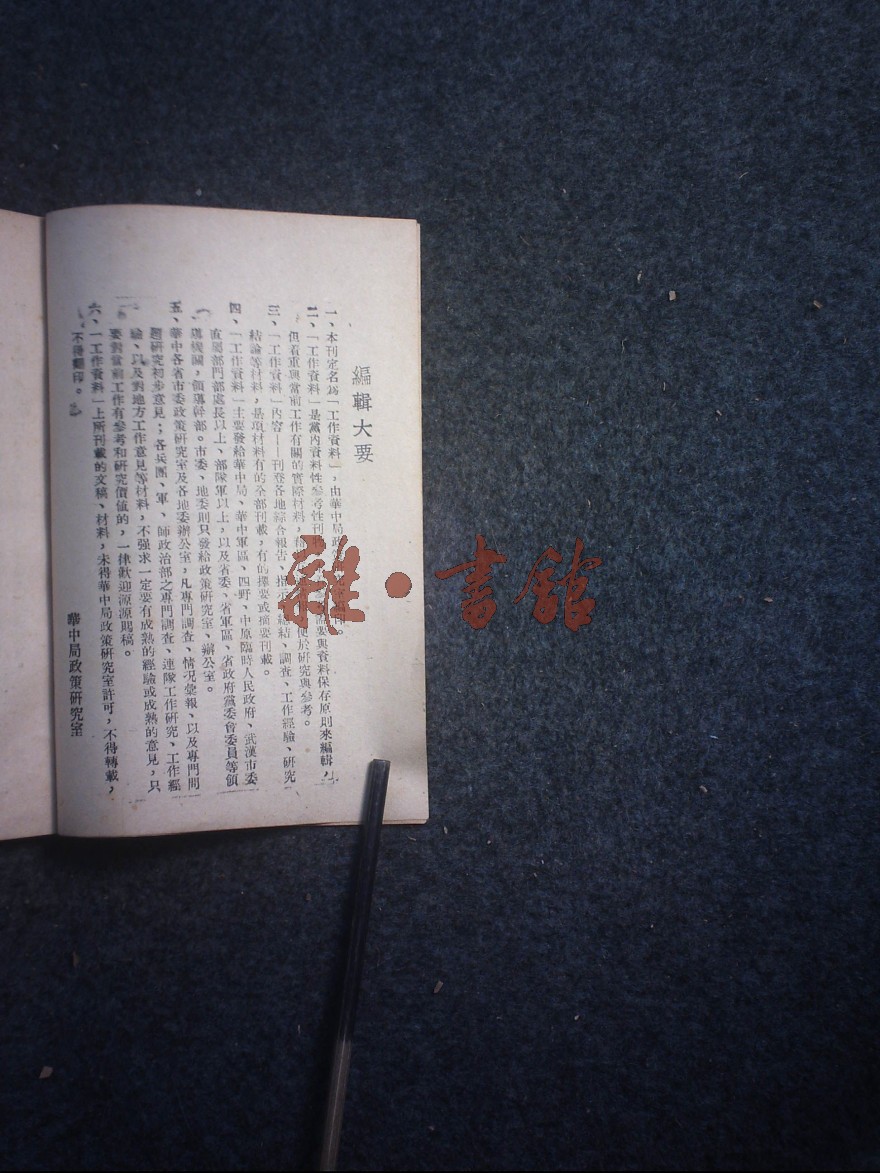 編輯大要
一、本刊定名爲「工作資料」，由華中局政
二、「工作資料」是黨內資料性參考性刊物 需要與資料保存原則來編輯，
但着重與當前工作有關的實際材料， 便於研究與參考。
三、「工作資料」內容——刊登各地綜合報告、指示、總結、調查、工作經驗、研究
結論等材料，是項材料有的全部刊載，有的擇要或摘要刊載。
四、「工作資料」主要發給華中局、華中軍區、四野、中原臨時人民政府、武漢市委
直屬部門部處長以上、部隊軍以上，以及省委、省軍區、省政府黨委會委員等領
導機關，領導幹部。市委、地委則只發給政策研究室、辦公室。
五、華中各省市委政策研究室及各地委辦公室，凡專門調查、情况彙報、以及專門問
題研究初步意見；各兵團、軍、師政治部之專門調查、連隊工作研究、工作經
驗、以及對地方工作意見等材料，不强求一定要有成熟的經驗或成熟的意見，只
要對當前工作有參考和研究價值的，一律歡迎源源賜稿。
六、「工作資料」上所刊載的文稿、材料，未得華中局政策研究室許可，不得轉載，
不得翻印。
華中局政策研究室
雜·書館